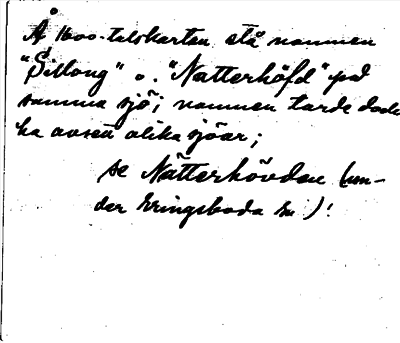 Å 1600-talskartan stå namnen
"Sillong" o. "Natterhöfd" på
samma sjö; namnen torde dock
ha avsett olika sjöar;
se Nätterhövden (un-
der Kringsboda sn)!